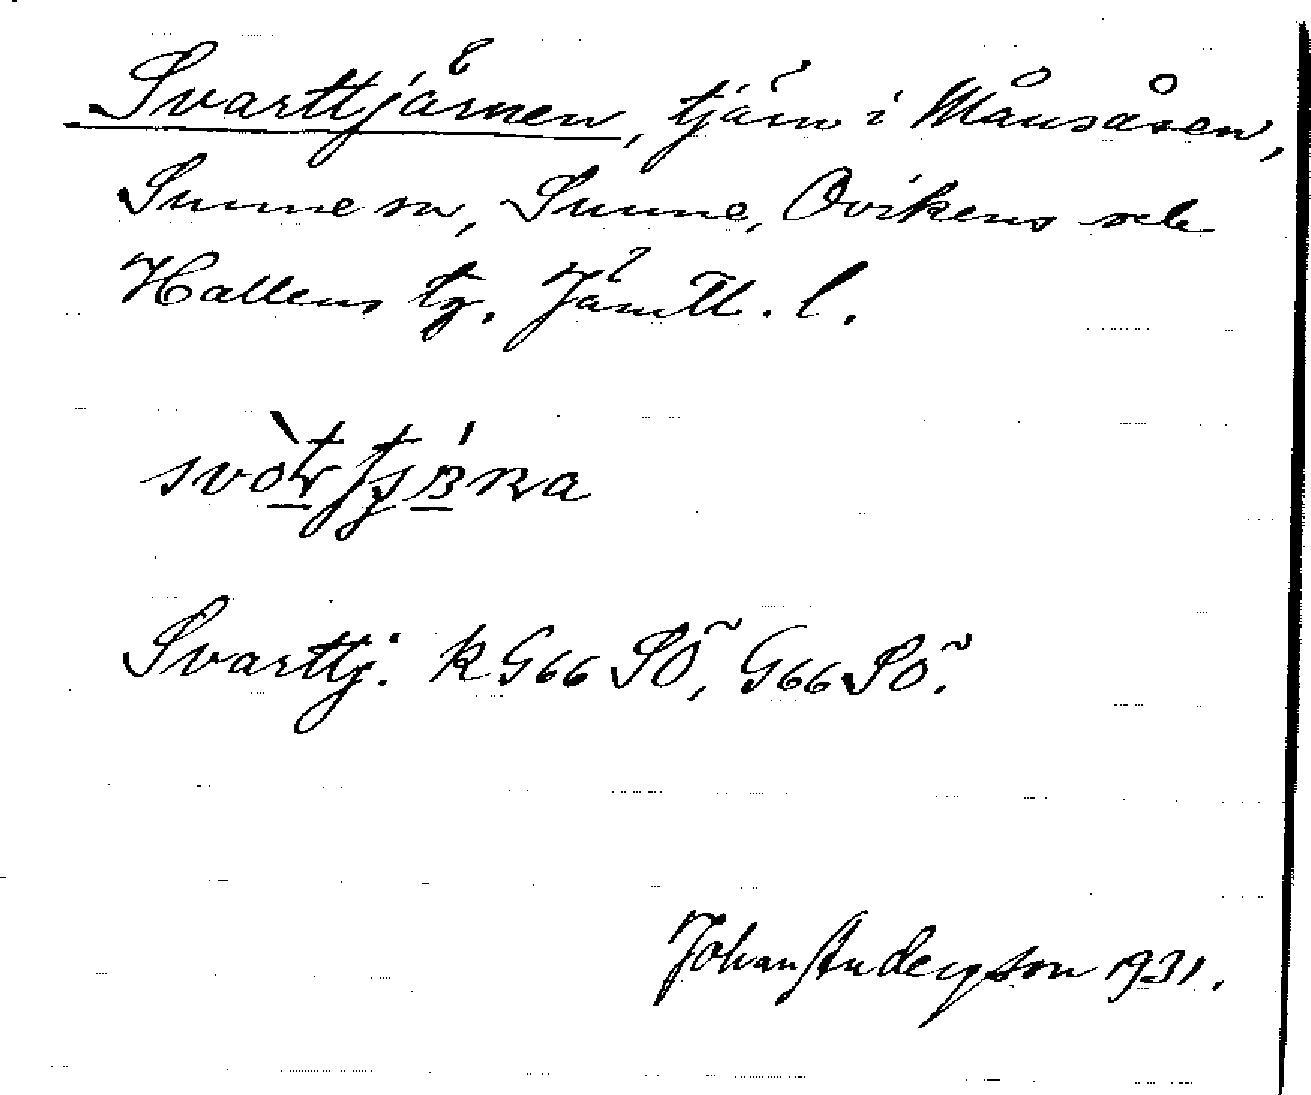 Svarttjärnen, tjärn i Månsåsen,
Sunne sn, Sunne, Ovikens och
Hallens tg. Jämtl. l.
Svarttj. k G66 SÖ, G66 SÖ.
Johan Anderson 1931.